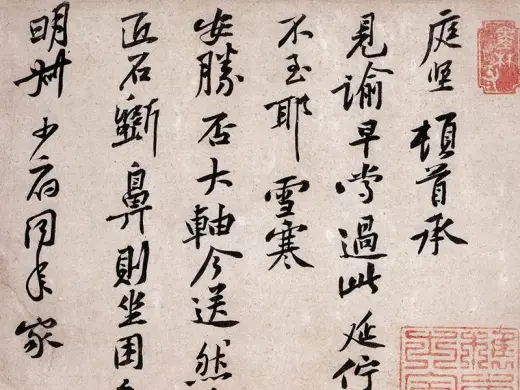 庭堅頓首承
見諭早嘗過此延佇
不至耶雪寒
安勝否大軸今送然
匠石斵鼻則坐困
明叔少府同年家